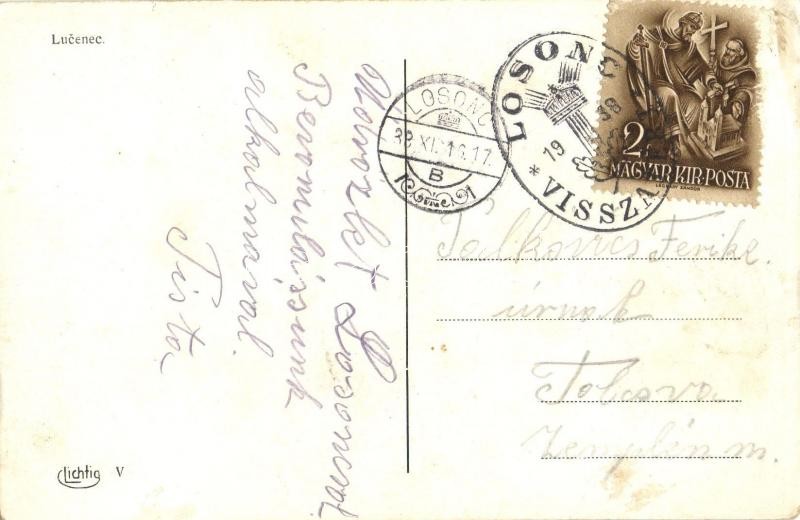 Lučenec.
LOSONC
38. XI. 16. 17
B
LOSONC
19 38
* VISSZA
2
MAGYAR KIR. POSTA
LÉGRÁDY SÁNDOR
Üdvözlet Losoncról
Bevonulásunk
alkalmával
Tista
Ferike
úrnak
Tolcsva
Zemplén m.
Lichtig V